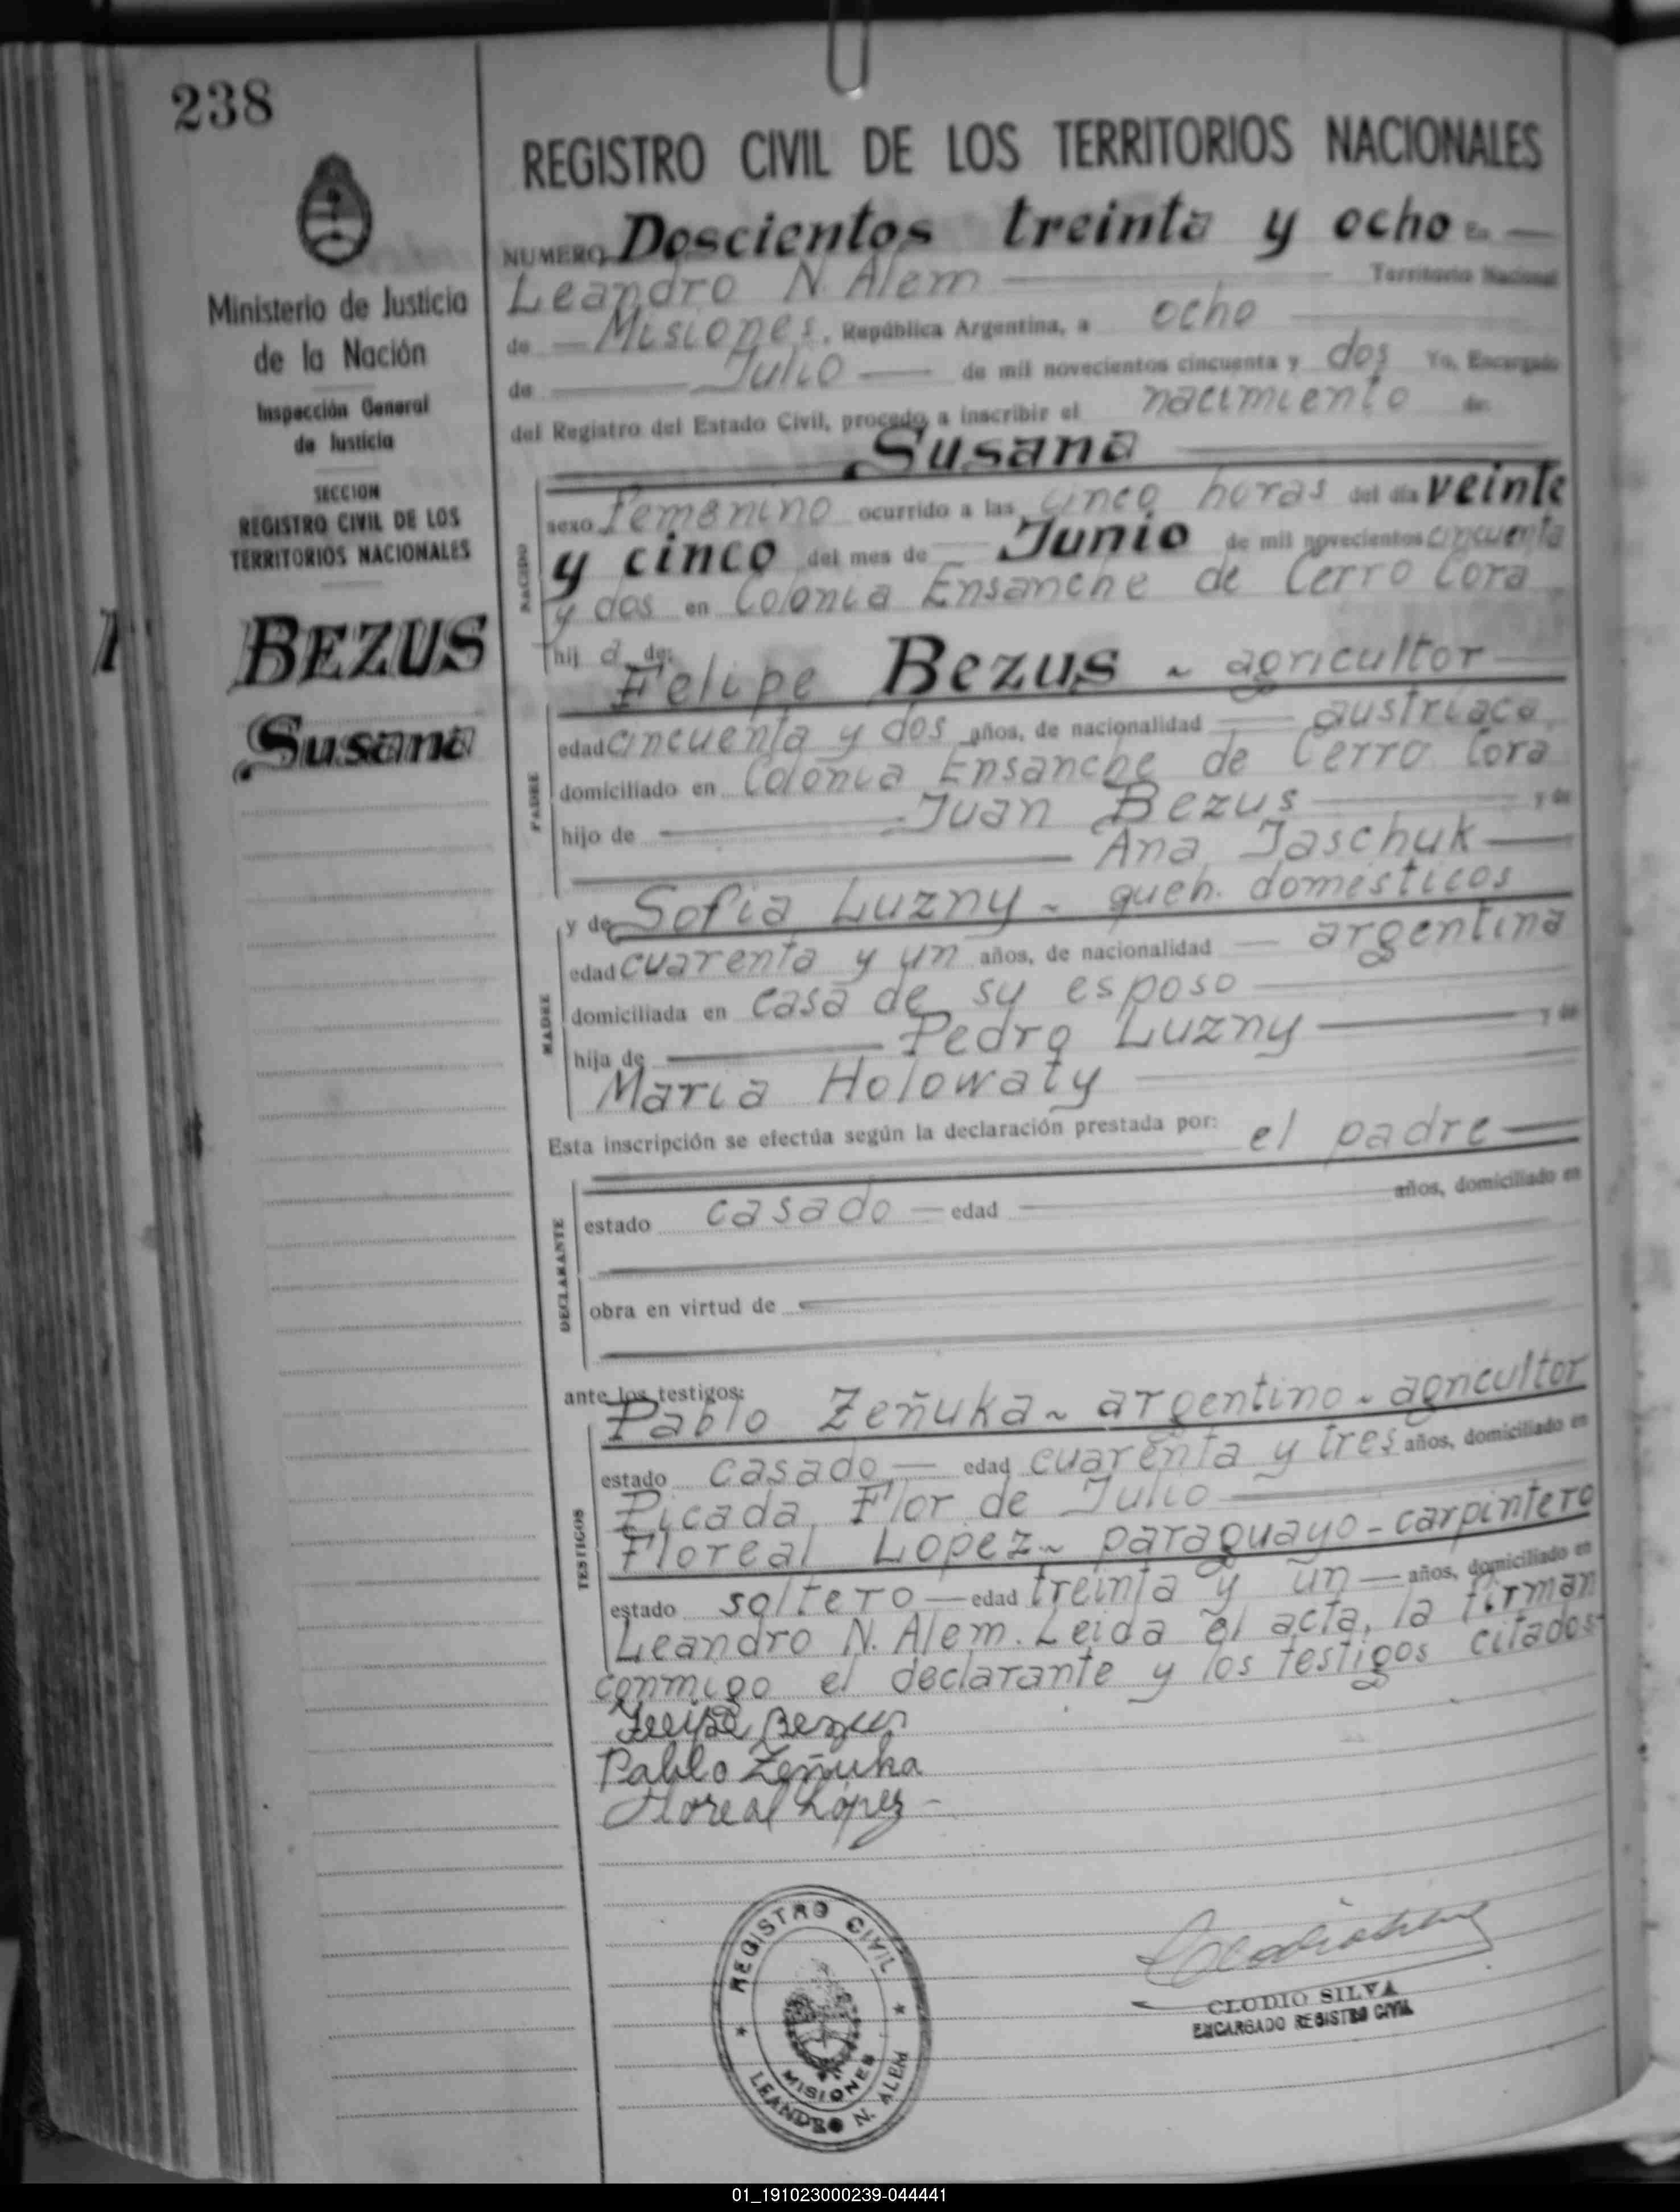 238
Ministerio de Justicia
de la Nación
Inspección General
de Justicia
SECCION
REGISTRO CIVIL DE LOS
TERRITORIOS NACIONALES
BEZUS
Susana
REGISTRO CIVIL DE LOS TERRITORIOS NACIONALES
NUMERO Doscientos treinta y ocho En
Leandro N. Alem Territorio Nacional
de Misiones, República Argentina, a ocho
de Julio de mil novecientos cincuenta y dos Yo, Encargado
del Registro del Estado Civil, procedo a inscribir el nacimiento de:
Susana
NACIDO
sexo femenino ocurrido a las cinco horas del día veinte
y cinco del mes de Junio de mil novecientos cincuenta
y dos en Colonia Ensanche de Cerro Cora
hij a de:
Felipe Bezus ~ agricultor
PADRE
edad cincuenta y dos años, de nacionalidad austriaca
domiciliado en Colonia Ensanche de Cerro Cora
hijo de Juan Bezus y de
Ana Jaschuk
y de Sofia Luzny ~ queh. domésticos
MADRE
edad cuarenta y un años, de nacionalidad argentina
domiciliada en casa de su esposo
hija de Pedro Luzny y de
Maria Holowaty
Esta inscripción se efectúa según la declaración prestada por: el padre
DECLARANTE
años, domiciliado en
estado casado edad
obra en virtud de
ante los testigos:
Pablo Zeñuka ~ argentino ~ agricultor
TESTIGOS
estado casado edad cuarenta y tres años, domiciliado en
Picada Flor de Julio
Floreal Lopez ~ paraguayo - carpintero
estado soltero edad treinta y un años, domiciliado en
Leandro N. Alem. Leida el acta, la firman
conmigo el declarante y los testigos citados-
Felipe Bezus
Pablo Zeñuka
Floreal López -
REGISTRO CIVIL
MISIONES
LEANDRO N. ALEM
CLODIO SILVA
ENCARGADO REGISTRO CIVIL
01_191023000239-044441